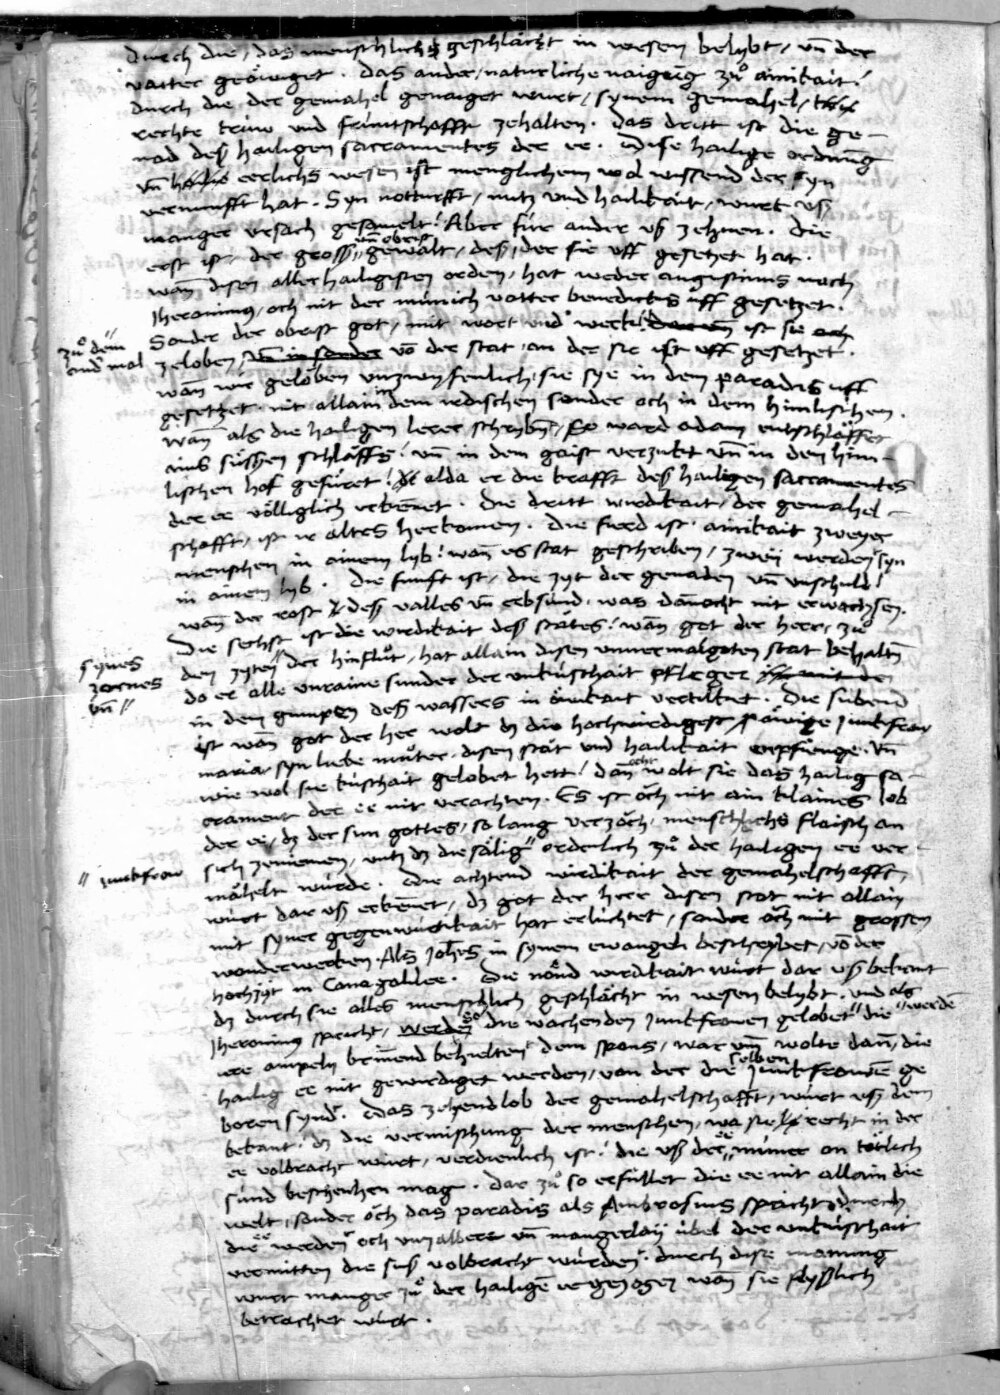 durch die / das menschlichs geschlächt in wesen belybt / vn̄ der
vatter geöwiget . das ander / naturliche naigūg zů ainikait /
durch die / der gemahel genaiget wurt / synem gemahel /
rechte trüw vnd früntschafft zehalten . das dritt ist die ge-
nad deß hailigen sacramentes der ee . Dise hailige ordnūg
vn̄ eerlichs wesen ist menglichem wol wissend der syn
vernunfft hat . Syn notturfft / nutz vnd hailikait / wurt vß
manger vrsach gesamelt / Aber für ander vß zehnen . die
erst ist / der gross vn̄ obrest gewalt / deß / der sie vff gesetzet hat .
wan̄ disen aller hailigisten orden / hat weder augustinus noch
Jheronimus / och nit der münich vatter benedictus uff gesetzet .
Sonder der obrist got / mit wort vnd werck / ist sie
zů dem
and mal
zeloben / vō der stat / an der sie ist vff gesetzet .
wan̄ wir geloben vnzwyfenlich / sie sye in dem paradis uff
gesetzet nit allain in dem irdischen sonder och in dem himlischen .
wan̄ als die hailigen lerer schryben / So ward adam entschläffet
ains süssen schlaffs / vn̄ in dem gaist verzukt vn̄ in den him-
lischen hof gefüret / alda er die krafft deß hailigen sacramentes
der ee völliglich erkēnet . die dritt wirdikait / der gemahel-
schafft / ist ir altes herkomen . die fierd ist ainikait zweyer
menschen in ainem lyb / wan̄ es stat geschriben / zwey werden syn
in ainem lyb . die fünft ist / die zyt der genaden vn̄ vnschuld /
wan̄ der rost deß valles vn̄ erbsünd / was dānocht nit erwachsen .
Die sechst ist die wirdikait deß states / wan̄ got der herr / zů
den zyten der hinflůt / hat allain disen vnuermalgoten stat behaltē
synes
zornes
vn̄
do er alle vnraine sünder der vnküschait pfleger
in dem gumpen deß wassers in vertilket . Die sübend
ist wan̄ got der her wolt dz die hochwirdigest öwige junkfrow
maria syn liebe můter / disen stat vnd hailikait enpfienge . vn̄
wie wol sie küschait gelobet hett / dan̄ echt wolt sie das hailig sa-
crament der ee nit verachten . Es ist och nit ain klaines lob
der ee / dz der sun gottes / so lang verzoch / menschlichs flaisch an
sich zeniemen / vntz dz die sälig ordenlich zů der hailigen ee ver-
junkfrow
mähelt würde . Die achtend wirdikait der gemahelschafft
würt dar vß erkēnet / dz got der herr disen stat nit allain
mit syner gegenwürtikait hat erlüchtet / sonder och mit grossen
wonderwerken . Als Johēs in synem ewangeli beschrybet / vō der
hochzyt in Cana galilee . Die nünd wirdikait würt dar vß bekant
dz durch sie alles menschlich geschlächt in wesen belybt . vnd als
Jheronimus spricht / so die wachenden junkfrowen gelobet werdē die
ire ampeln brinend behielten dem spons / war vm̄ wolte dan̄ / die
hailig ee nit gewirdiget werden / von der die selben junkfrowē ge
boren synd . Das zehend lob der gemahelschafft / würt vß dem
bekant / dz die vermischung der menschen / wa sie recht in der
ee volbracht würt / verdienlich ist / die vß der ee nimer on tötlich
sünd beschenhen mag . Dar zů so erfüllet die ee nit allain die
welt / sonder och das paradis als Ambrosius spricht / durch
die ee werden och vnzalbere vn̄ mangerlay übel der vnküschait
vermitten die sust volbracht würden . durch dise manung
wurt manger zů der hailigē ee gezogen wan̄ sie flyßlich
betrachtet würt .